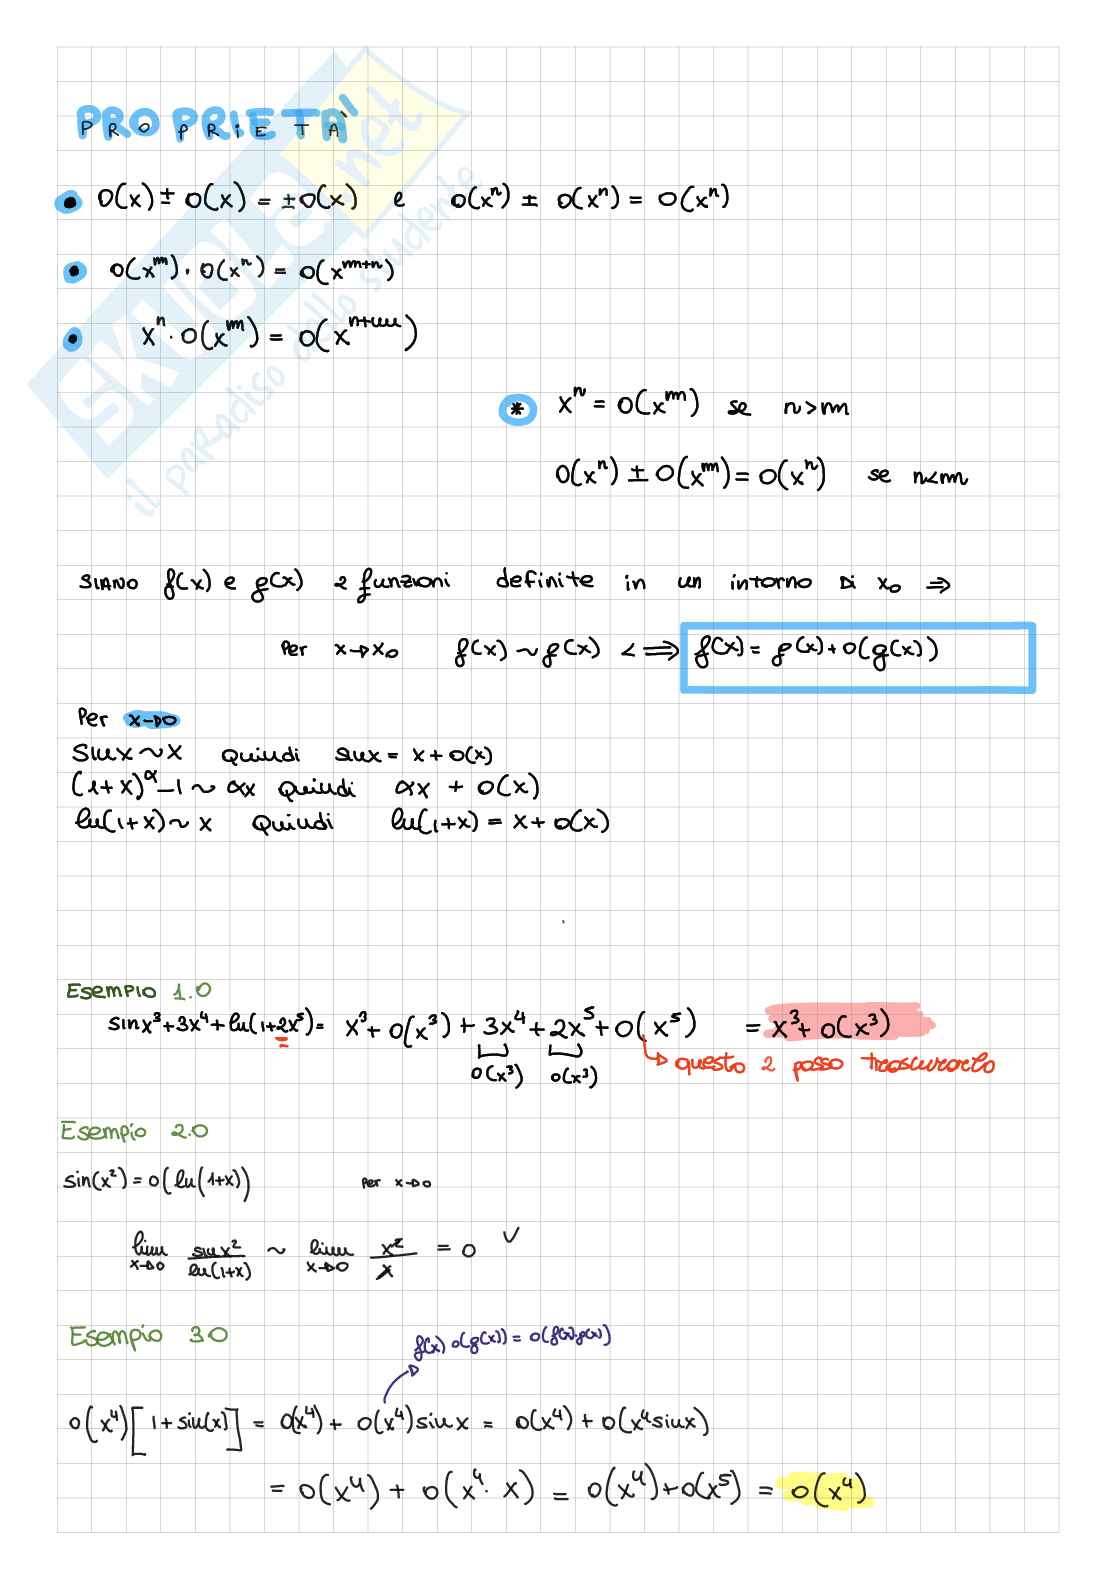 PROPRIETA'
• o(x) ± o(x) = ±o(x) e o(xⁿ) ± o(xⁿ) = o(xⁿ)
• o(xᵐ) · o(xⁿ) = o(xᵐ⁺ⁿ)
• xⁿ · o(xᵐ) = o(xⁿ⁺ᵐ)
* xⁿ = o(xᵐ) se n>m
o(xⁿ) ± o(xᵐ) = o(xⁿ) se n<m
SIANO f(x) e g(x) 2 funzioni definite in un intorno Di x₀ ⇒
Per x→x₀ f(x) ~ g(x) <=> f(x) = g(x) + o(g(x))
Per x→0
Sinx ~ x Quindi sinx = x + o(x)
(1+x)^α -1 ~ αx Quindi αx + o(x)
ln(1+x) ~ x Quindi ln(1+x) = x + o(x)
Esempio 1.0
sinx³+3x⁴+ln(1+2x⁵) = x³ + o(x³) + 3x⁴ + 2x⁵ + o(x⁵) = x³ + o(x³)
o(x³) o(x³) → questo 2 posso trascurarlo
Esempio 2.0
sin(x²) = o(ln(1+x)) Per x→0
lim x→0 sinx²/ln(1+x) ~ lim x→0 x²/x = 0 ✓
Esempio 3.0
f(x) o(g(x)) = o(f(x)·g(x))
o(x⁴)[1+sin(x)] = o(x⁴) + o(x⁴)sinx = o(x⁴) + o(x⁴sinx)
= o(x⁴) + o(x⁴· x) = o(x⁴)+o(x⁵) = o(x⁴)
SKUOLA.net
il paradiso dello studente